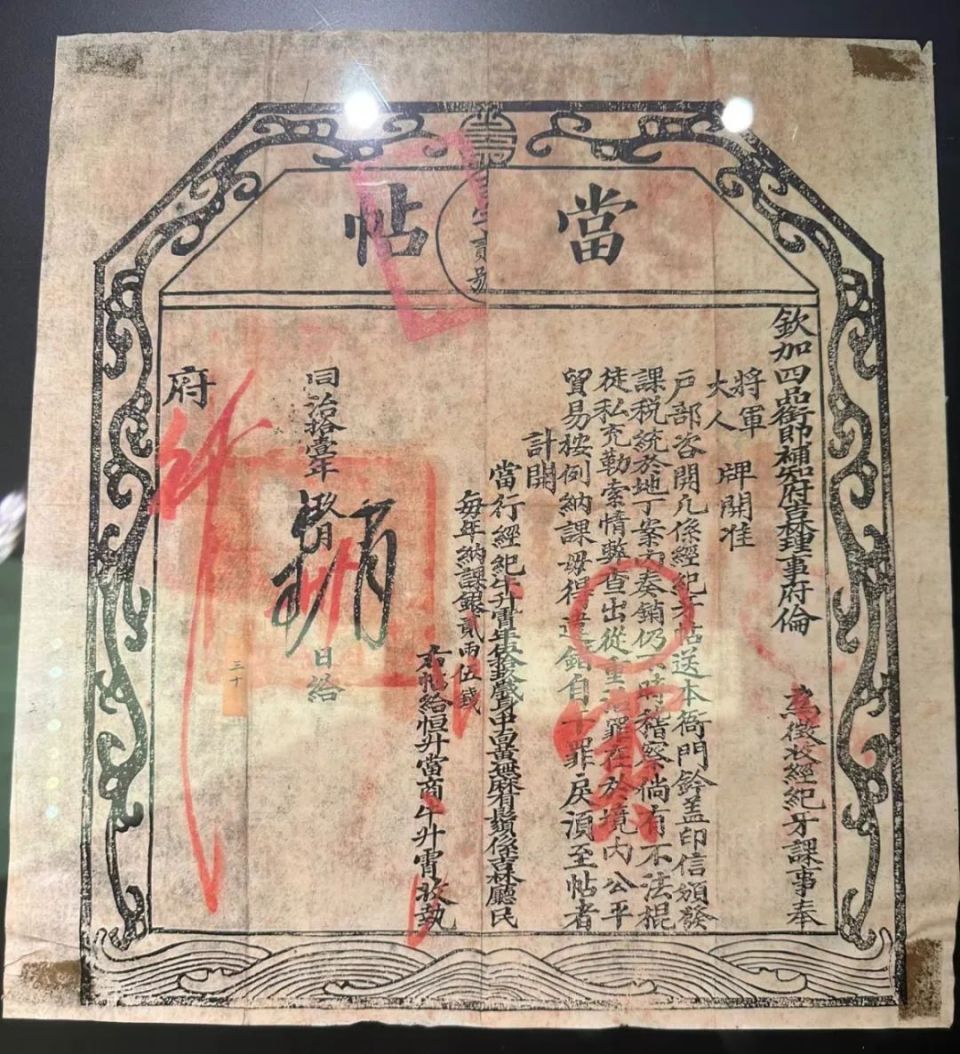 當帖
字貳號
欽加四品銜即補知府吉林理事府倫 為徵收經紀牙課事奉
將軍
大人 牌開准
戶部咨開凡係經紀牙帖送本衙門鈐蓋印信頒發
課稅統於地丁案內奏銷仍不時稽察倘有不法棍
徒私充勒索情弊查出從重治罪在於境內公平
貿易按例納課毋得違錯自干罪戾須至帖者
計開
當行經紀牛升霄年拾歲身中面黃無麻有鬚係吉林廳民
每年納課銀貳兩伍錢
右帖給恒升當商牛升霄收執
同治拾壹年 日給
三十
府